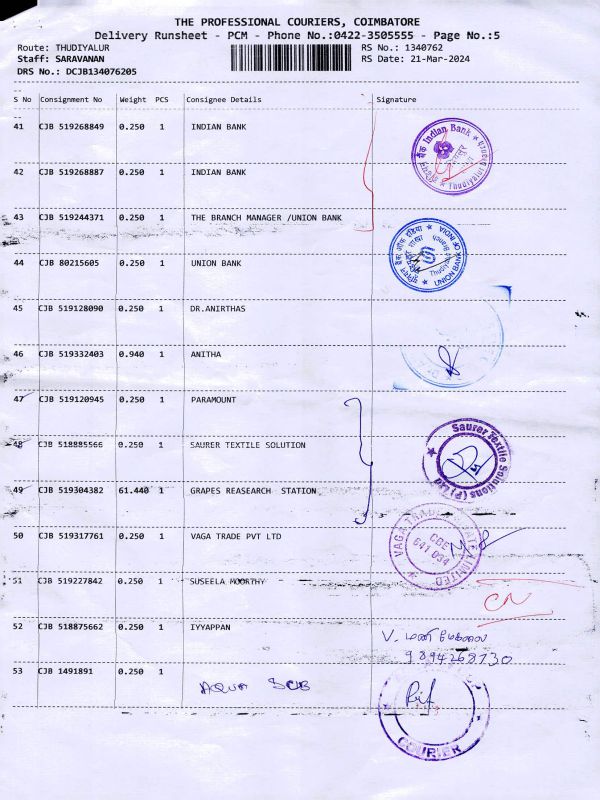 THE PROFESSIONAL COURIERS, COIMBATORE
Delivery Runsheet - PCM - Phone No.:0422-3505555 - Page No.:5
Route: THUDIYALUR RS No.: 1340762
Staff: SARAVANAN RS Date: 21-Mar-2024
DRS No.: DCJB134076205
S No Consignment No Weight PCS Consignee Details Signature
41 CJB 519268849 0.250 1 INDIAN BANK
Indian Bank
Thudiyalur
42 CJB 519268887 0.250 1 INDIAN BANK
43 CJB 519244371 0.250 1 THE BRANCH MANAGER /UNION BANK
44 CJB 80215605 0.250 1 UNION BANK
UNION BANK OF INDIA
45 CJB 519128090 0.250 1 DR.ANIRTHAS
46 CJB 519332403 0.940 1 ANITHA
47 CJB 519120945 0.250 1 PARAMOUNT
48 CJB 518885566 0.250 1 SAURER TEXTILE SOLUTION
Saurer Textile Solutions (P) Ltd
49 CJB 519304382 61.440 1 GRAPES REASEARCH STATION
50 CJB 519317761 0.250 1 VAGA TRADE PVT LTD
VAGA TRADE PRIVATE LIMITED
CBE
641 034
51 CJB 519227842 0.250 1 SUSEELA MOORTHY
CN
52 CJB 518875662 0.250 1 IYYAPPAN
V. மணிமேகலை
9894268730
53 CJB 1491891 0.250 1
AQUA SUB
COURIER